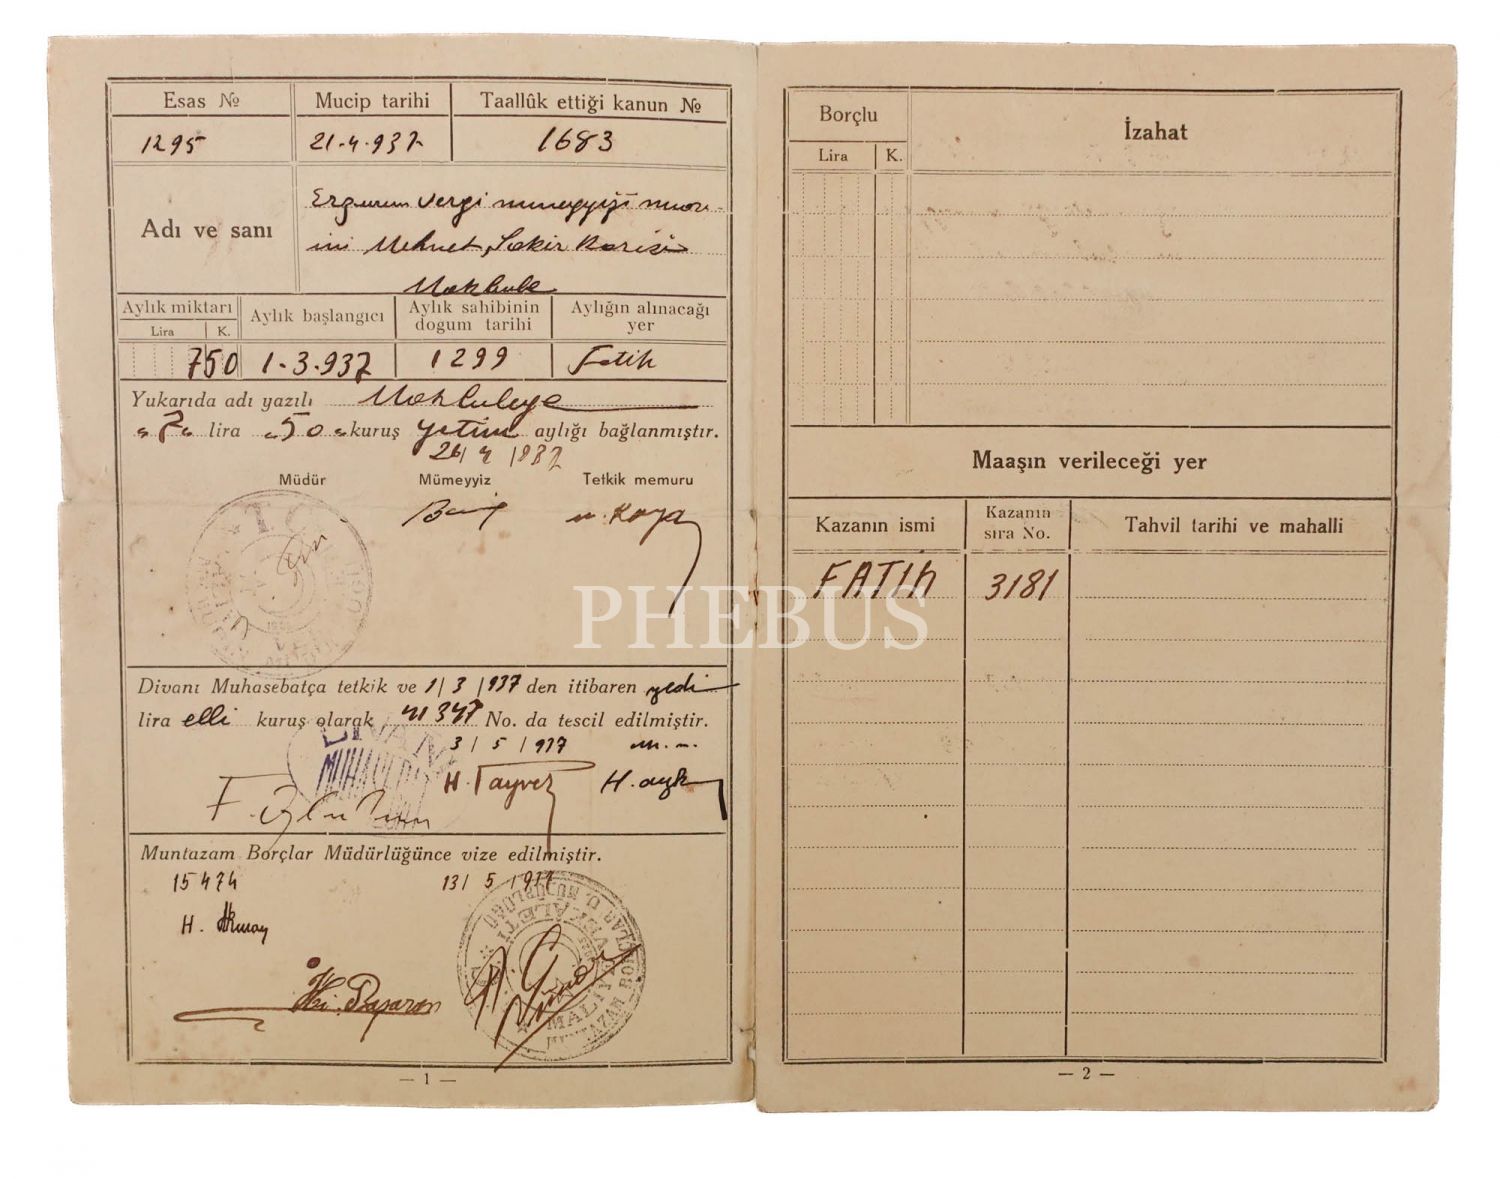 Esas № Mucip tarihi Taallûk ettiği kanun №
1295 21-4-937 1683
Adı ve sanı
Erzurum vergi mümeyyizi
Mehmet Şakir Karısı
Makbule
Aylık miktarı Aylık başlangıcı Aylık sahibinin doğum tarihi Aylığın alınacağı yer
Lira K.
750 1-3-937 1299 Fatih
Yukarıda adı yazılı Makbuleye
"7" lira "50" kuruş yetim aylığı bağlanmıştır.
26/4/937
Müdür Mümeyyiz Tetkik memuru
T.C.
Divanı Muhasebatça tetkik ve 1/3/937 den itibaren yedi
lira elli kuruş olarak 41347 No. da tescil edilmiştir.
3/5/937
DİVANI
MUHASEBAT
H. Tayvez
Muntazam Borçlar Müdürlüğünce vize edilmiştir.
15474 13/5/937
Başaran
MALİYE VEKALETİ
MUNTAZAM BORÇLAR U. MÜDÜRLÜĞÜ
— 1 —
Borçlu İzahat
Lira K.
Maaşın verileceği yer
Kazanın ismi Kazanın sıra No. Tahvil tarihi ve mahalli
FATİh 3181
— 2 —
PHEBUS